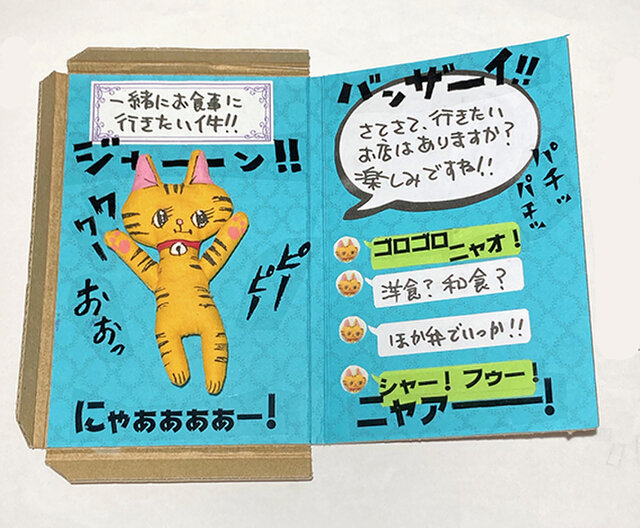 一緒にお食事に
行きたい件!!
ジャーーン!!
ククー
おおっ
ピーピー
にゃぁぁぁぁー!
バンザーイ!!
さてさて、行きたい
お店はありますか?
楽しみですね!!
パチッ
パチッ
ゴロゴロ
ニャオ!
洋食?和食?
ほか弁でいっか!!
シャー! フゥー!
ニャアーー!